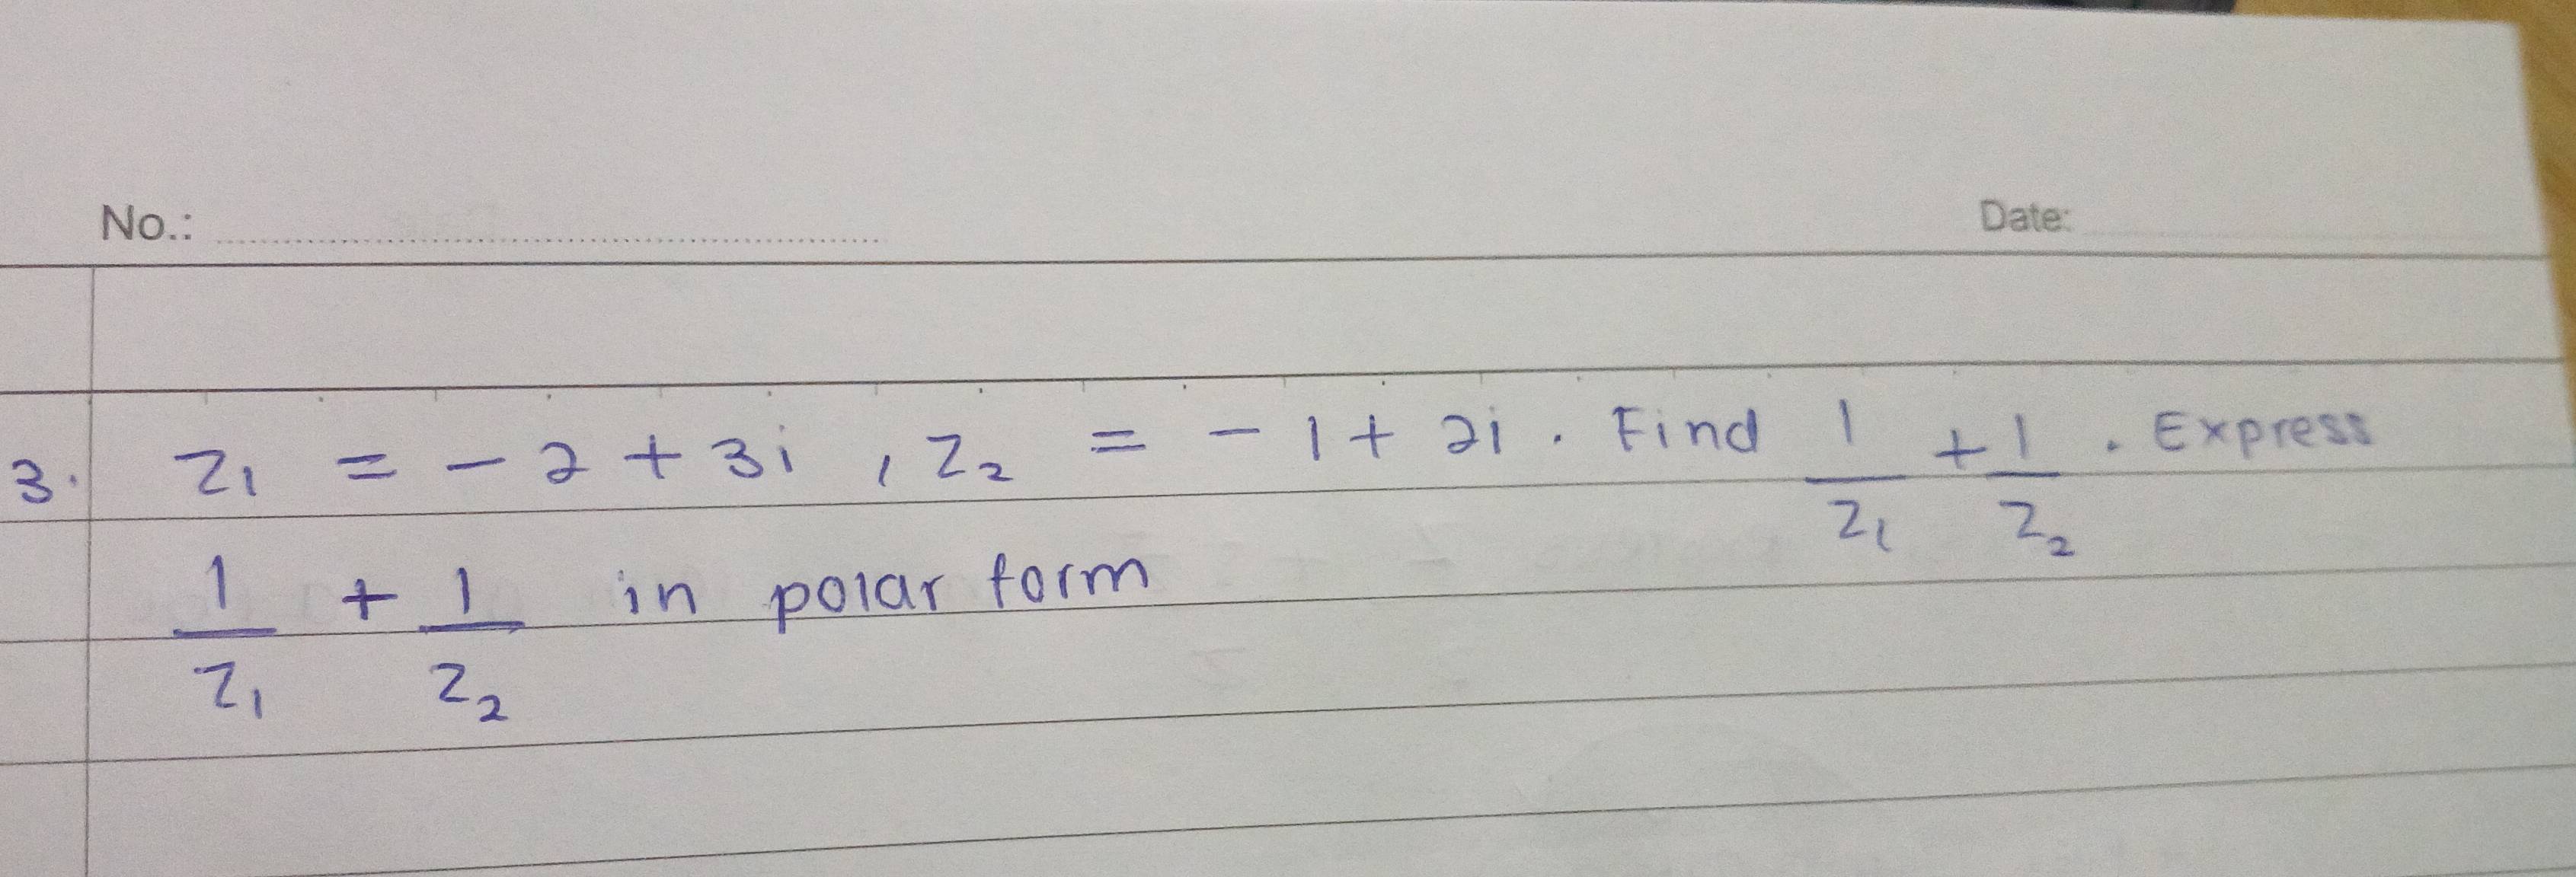 No.: Date:
3. z₁ = -2 + 3i, z₂ = -1 + 2i. Find 1/z₁ + 1/z₂. Express
1/z₁ + 1/z₂ in polar form